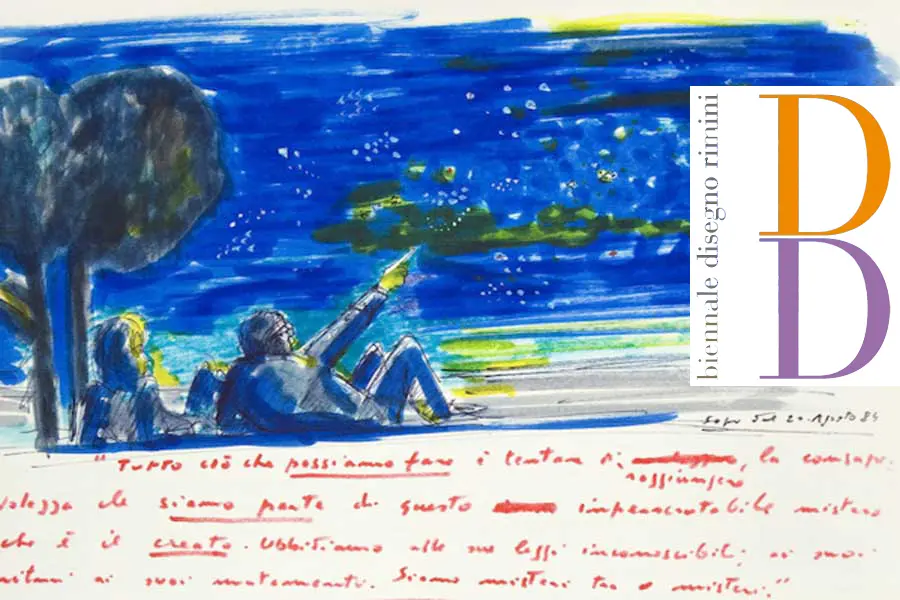 biennale disegno rimini
D
D
Sogno del 20 Agosto 84
"Tutto ciò che possiamo fare è tentare di, la consape-
raggiungere
volezza che siamo parte di questo imperscrutabile mistero
che è il creato. Ubbidiamo alle sue leggi inconoscibili, ai suoi
ritmi ai suoi mutamenti. Siamo misteri tra misteri."